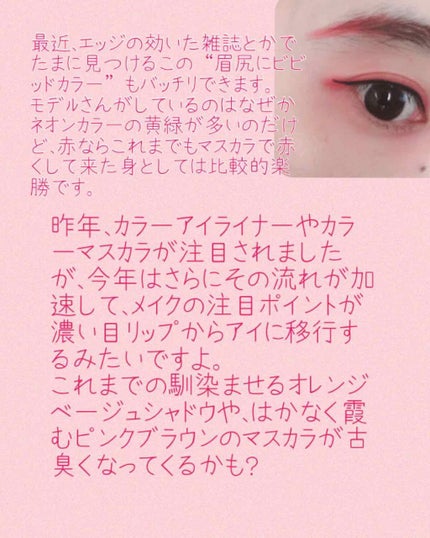 最近、エッジの効いた雑誌とかで
たまに見つけるこの“眉尻にビビ
ッドカラー”もバッチリできます。
モデルさんがしているのはなぜか
ネオンカラーの黄緑が多いのだけ
ど、赤ならこれまでもマスカラで赤
くして来た身としては比較的楽
勝です。
昨年、カラーアイライナーやカラ
ーマスカラが注目されました
が、今年はさらにその流れが加
速して、メイクの注目ポイントが
濃い目リップからアイに移行す
るみたいですよ。
これまでの馴染ませるオレンジ
ベージュシャドウや、はかなく霞
むピンクブラウンのマスカラが古
臭くなってくるかも?